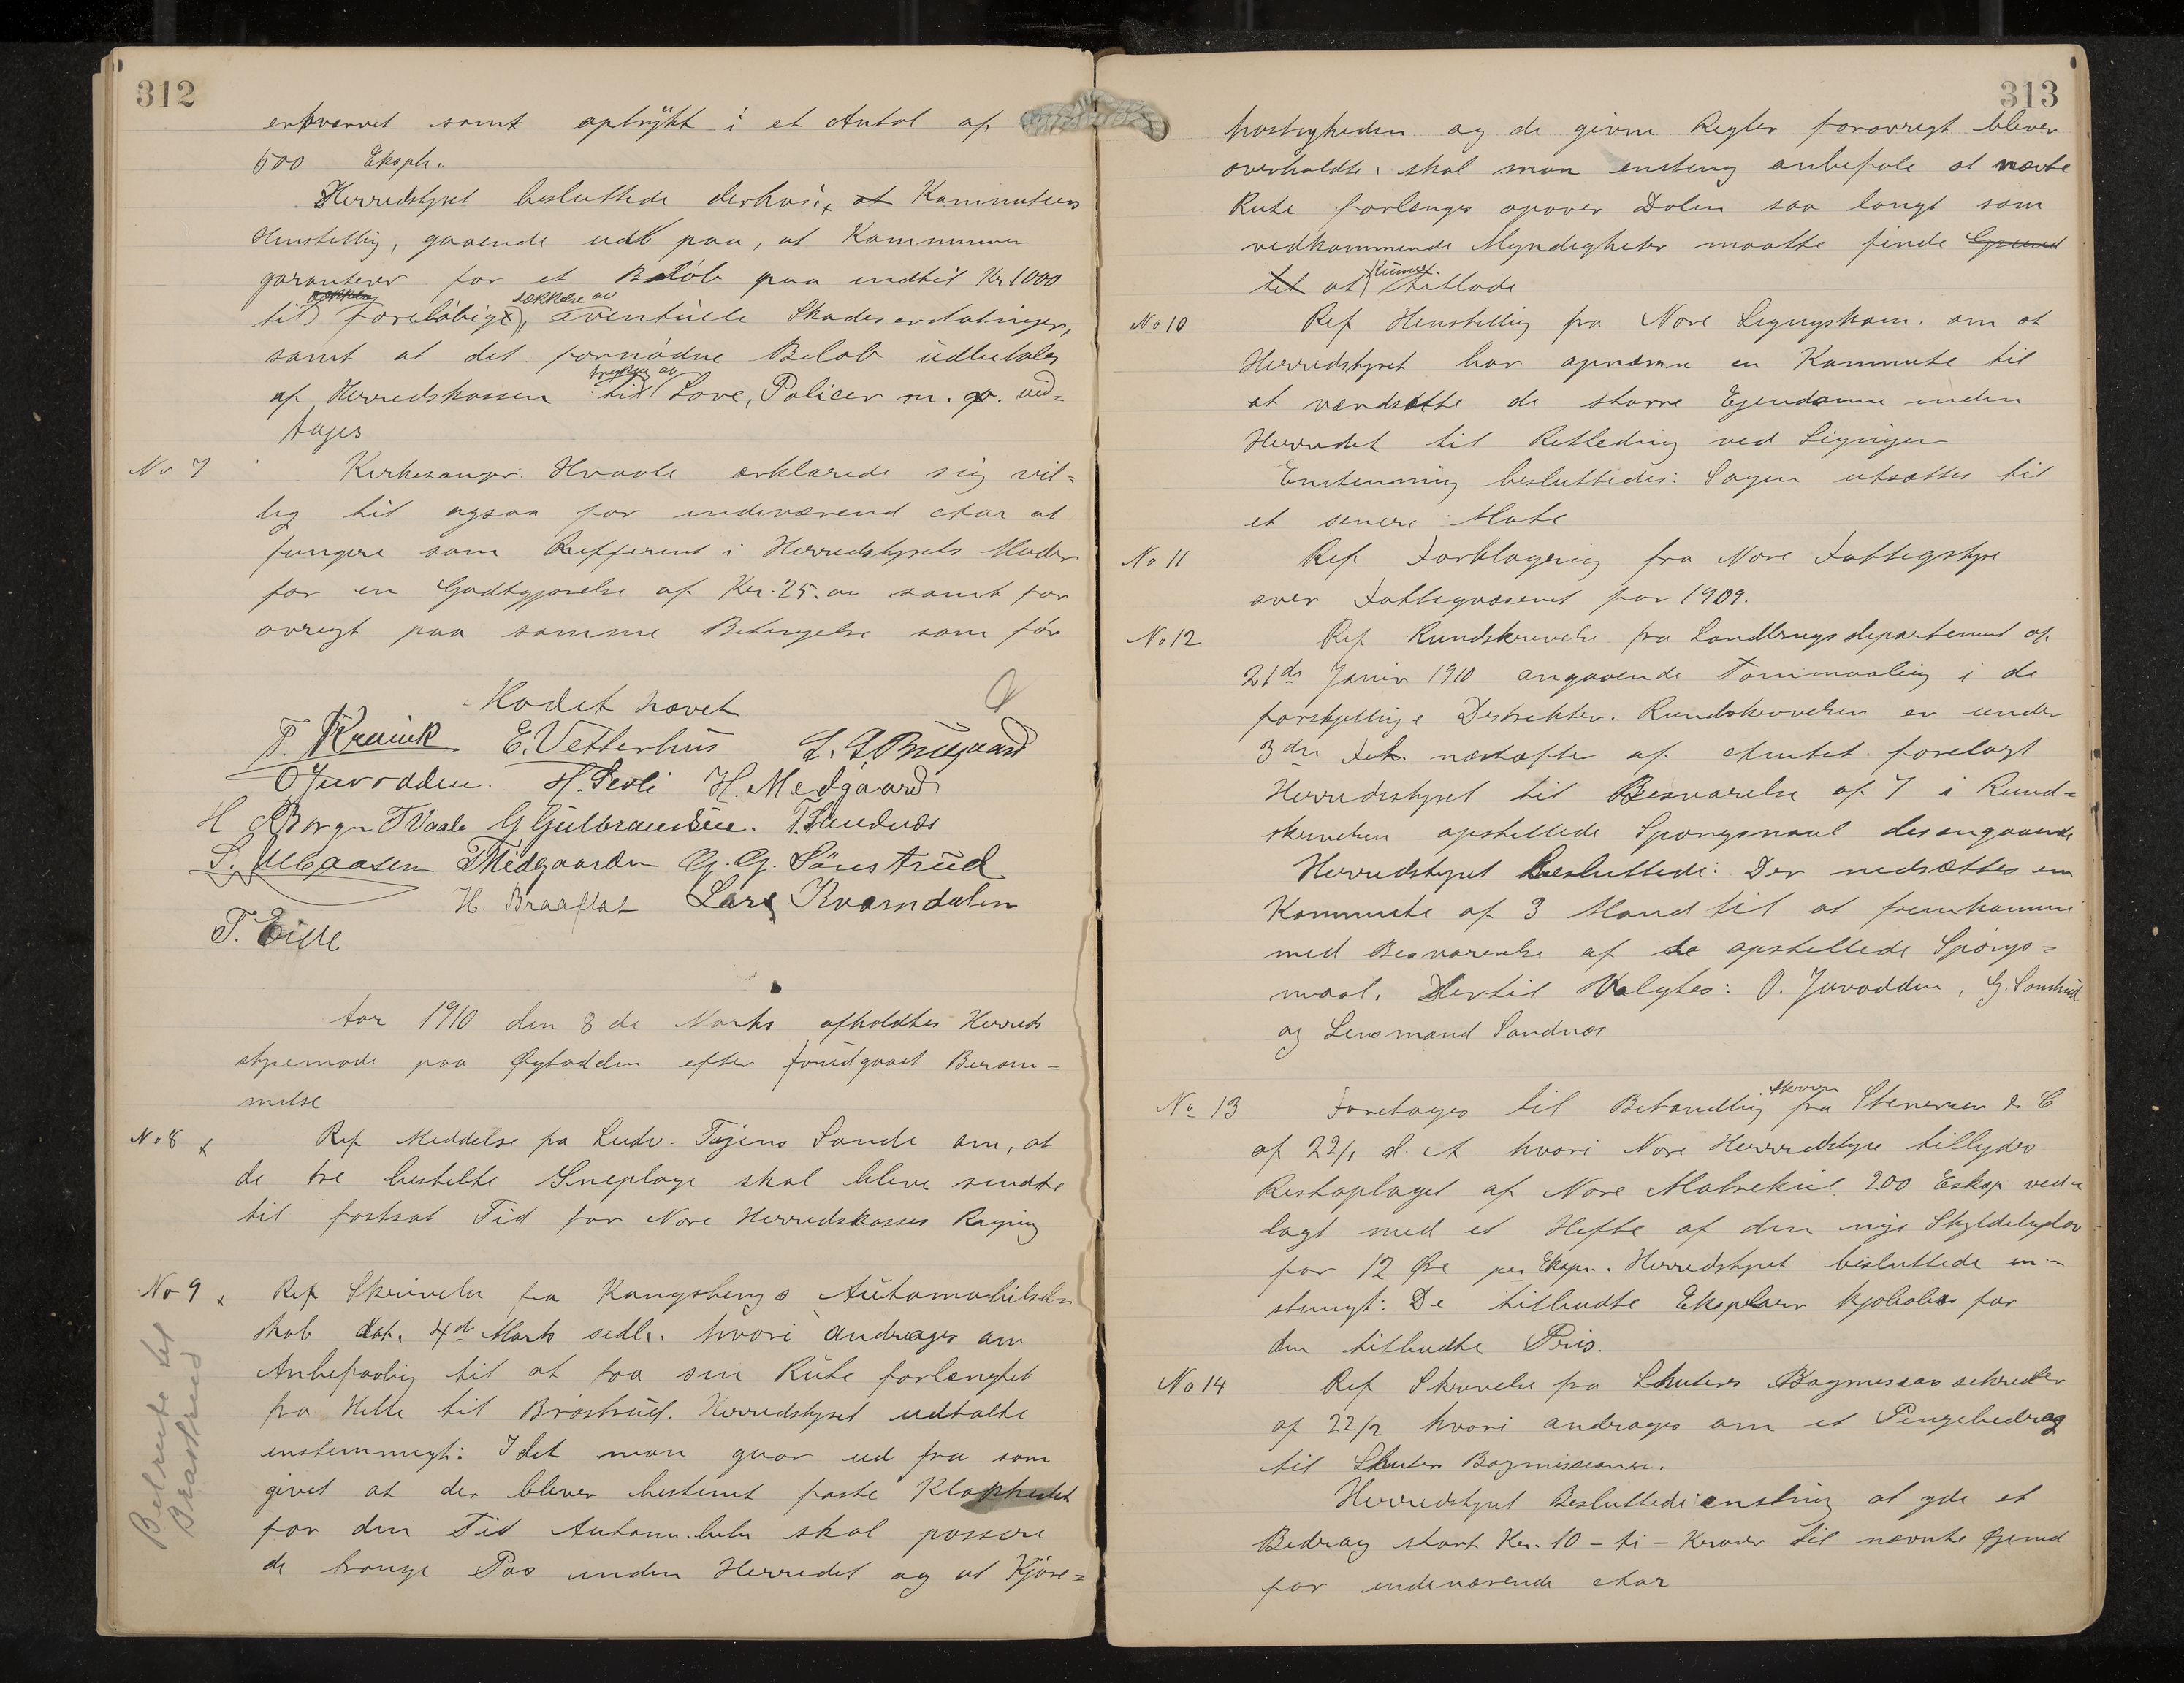 312
erhvervet samt optrykt i et Antal af
600 Expl.
Herredstyret besluttede derhos, at Kommiteens
Henstilling, gaaende udt paa, at Kommunen
garanterer for et Beløb paa indtil Kr 1000
til foreløbige, dækkelse av eventuele Skadeserstatninger,
samt at det fornødne Beløb udbetales
af Herredskassen til trykning av Love, Policer m. v. ved=
tages
No 7 Kirkesanger Hvaale erklærede sig vil=
lig til ogsaa for indeværend Aar at
fungere som Refferent i Herredstyrets Møder
for en Godtgjørelse af Kr. 25.00 samt for
øvrigt paa samme Betingelse som før
Mødet hævet
T. Kravik E. Vetterhus L. L. Brügaard
O Juvodden. H. Sevli H. Medgaard
H Borgen T Vaale G Gulbrandsen. T. Sandnæs
S. Ulbaasen T Midgaarden G. G. Sønstrud
H. Braaflat Lars Kvarndalen
T. Eide
Aar 1910 den 8de Marts afholdtes Herreds
styremøde paa Øygodden efter forudgaaet Beram=
melse
No 8 x Ref Meddelse fra Ludv. Tajens Sande om, at
de tre bestelte Sneploge skal blive sendte
til fastsat Tid for Nore Herredskasses Regning
No 9 x Ref Skrivelse fra Kongsbergs Automobilsel=
skab dat. 4d Marts sidstl. hvori andrages om
Anbefaling til at faa sin Rute forlænget
fra Helle til Brøstrud. Herredstyret udtalte
enstemmigt: Idet man gaar ud fra som
givet at der bliver bestemt faste Klokkeslet
for den Tid Automobilen skal passere
de trange Pas inden Herredet og at Kjøre=
Bilrute til
Brøstrud
313
hastigheden og de givne Regler forøvrigt bliver
overholdte, skal man ensteming anbefale at nævte
Rute forlænges opover Dalen saa langt som
vedkommende Myndigheter maatte finde Grund
til at kunne tillade
No 10 Ref Henstilling fra Nore Ligningskom. om at
Herredstyret bør opnævne en Kommite til
at værdsætte de større Ejendomme inden
Herredet til Retledning ved Ligningen
Enstemmig besluttedes: Sagen utsættes til
et senere Møte
No 11 Ref Forklaring fra Nore Fattigstyre
over Fattigvæsenet for 1909.
No 12 Ref Rundskrivelse fra Landbrugsdepartement af
21de Januar 1910 angaaende Tømmmaaling i de
forskjellige Distrikter. Rundskrivelsen er under
3die Feb. næstefter af Amtet forelagt
Herredsstyret til Besvarelse af 7 i Rund=
skrivelsen opstillede Spørgsmaal desangaaende
Herredstyret besluttede: Der nedsættes en
Kommite af 3 Mand til at fremkomme
med Besvarelse af de opstillede Spørgs=
maal. Dertil valgtes: O. Juvodden, G. Sønstrud
og Lensmand Sandnæs
No 13 Foretages til Behandling skriv. fra Stenersen & C
af 22/1 d. A hvori Nore Herredstyre tillbydes
Restoplaget af Nore Matrekul 200 Eksp ved=
lagt med et Hefte af den nye Skyldelydar
for 12 Øre per Expr. Herredstyret besluttede en=
stemigt: De tilbudte Eksplarer kjøbes for
den tilbudte Pris.
No 14 Ref Skrivelse fra Skuters Bogmissions sekretær
af 22/2 hvori andrages om et Pengebidrag
til Skuters Bogmissionen.
Herredstyret Besluttede ensteming at yde et
Bidrag stort Kr. 10 - ti - Kroner til nævnte Øjemed
for indeværende Aar